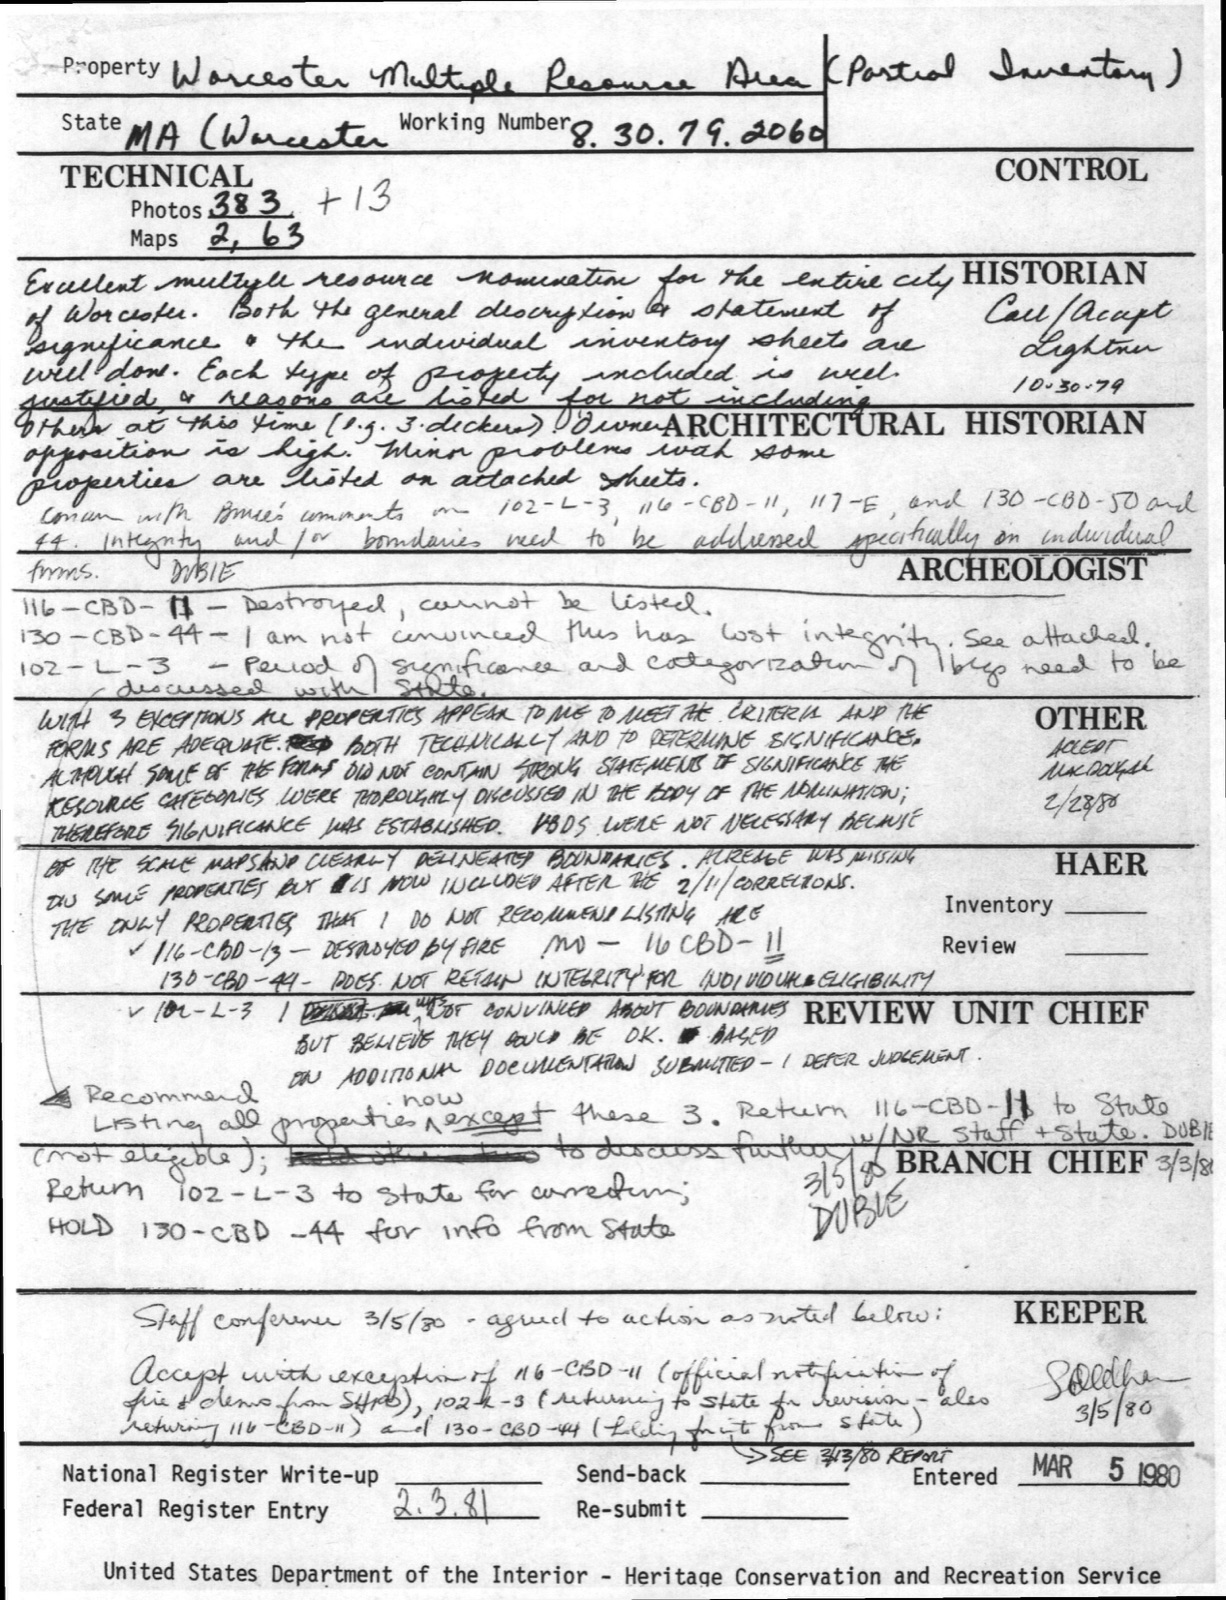 Property Worcester Multiple Resource Area (Partial Inventory)
State MA (Worcester Working Number 8.30.79.2060
TECHNICAL CONTROL
Photos 383 + 13
Maps 2, 63
Excellent multiple resource nomination for the entire city HISTORIAN
of Worcester. Both the general description & statement of Call/Accept
significance & the individual inventory sheets are Lightner
well done. Each type of property included is well 10-30-79
justified, & reasons are listed for not including
others at this time (e.g. 3-deckers). Owner ARCHITECTURAL HISTORIAN
opposition is high. Minor problems with some
properties are listed on attached sheets.
Concur with Bruce's comments on 102-L-3, 116-CBD-11, 117-E, and 130-CBD-50 and
44. Integrity and/or boundaries need to be addressed specifically on individual
forms. DUBIE ARCHEOLOGIST
116-CBD-11 - Destroyed, cannot be listed.
130-CBD-44 - I am not convinced this has lost integrity. See attached.
102-L-3 - Period of significance and categorization of bldgs need to be
discussed with State.
WITH 3 EXCEPTIONS ALL PROPERTIES APPEAR TO ME TO MEET THE CRITERIA AND THE OTHER
FORMS ARE ADEQUATE BOTH TECHNICALLY AND TO DETERMINE SIGNIFICANCE. ACCEPT
ALTHOUGH SOME OF THE FORMS DID NOT CONTAIN STRONG STATEMENTS OF SIGNIFICANCE THE MACDOUGAL
RESOURCE CATEGORIES WERE THOROUGHLY DISCUSSED IN THE BODY OF THE NOMINATION; 2/28/80
THEREFORE SIGNIFICANCE WAS ESTABLISHED. VBDS WERE NOT NECESSARY BECAUSE
OF THE SCALE MAPS AND CLEARLY DELINEATED BOUNDARIES. ACREAGE WAS MISSING HAER
ON SOME PROPERTIES BUT IS NOW INCLUDED AFTER THE 2/11/CORRECTIONS.
THE ONLY PROPERTIES THAT I DO NOT RECOMMEND LISTING ARE Inventory
✓ 116-CBD-13 - DESTROYED BY FIRE no - 16 CBD-11 Review
130-CBD-44 - DOES NOT RETAIN INTEGRITY FOR INDIVIDUAL ELIGIBILITY
✓ 102-L-3 I WAS NOT CONVINCED ABOUT BOUNDARIES REVIEW UNIT CHIEF
BUT BELIEVE THEY COULD BE O.K. BASED
ON ADDITIONAL DOCUMENTATION SUBMITTED - I DEFER JUDGEMENT.
Recommend
Listing all properties now except these 3. Return 116-CBD-11 to State
(not eligible); to discuss further w/NR Staff + State. DUBIE
3/5/80 BRANCH CHIEF 3/3/80
Return 102-L-3 to State for correction; DUBIE
HOLD 130-CBD-44 for info from State
Staff conference 3/5/80 - agreed to action as noted below: KEEPER
Accept with exception of 116-CBD-11 (official notification of
fire & demo from SHPO), 102-L-3 (returning to State for revision - also 3/5/80
returning 116-CBD-11) and 130-CBD-44 (holding for info from State)
→ SEE 3/13/80 REPORT
National Register Write-up Send-back Entered MAR 5 1980
Federal Register Entry 2.3.81 Re-submit
United States Department of the Interior - Heritage Conservation and Recreation Service